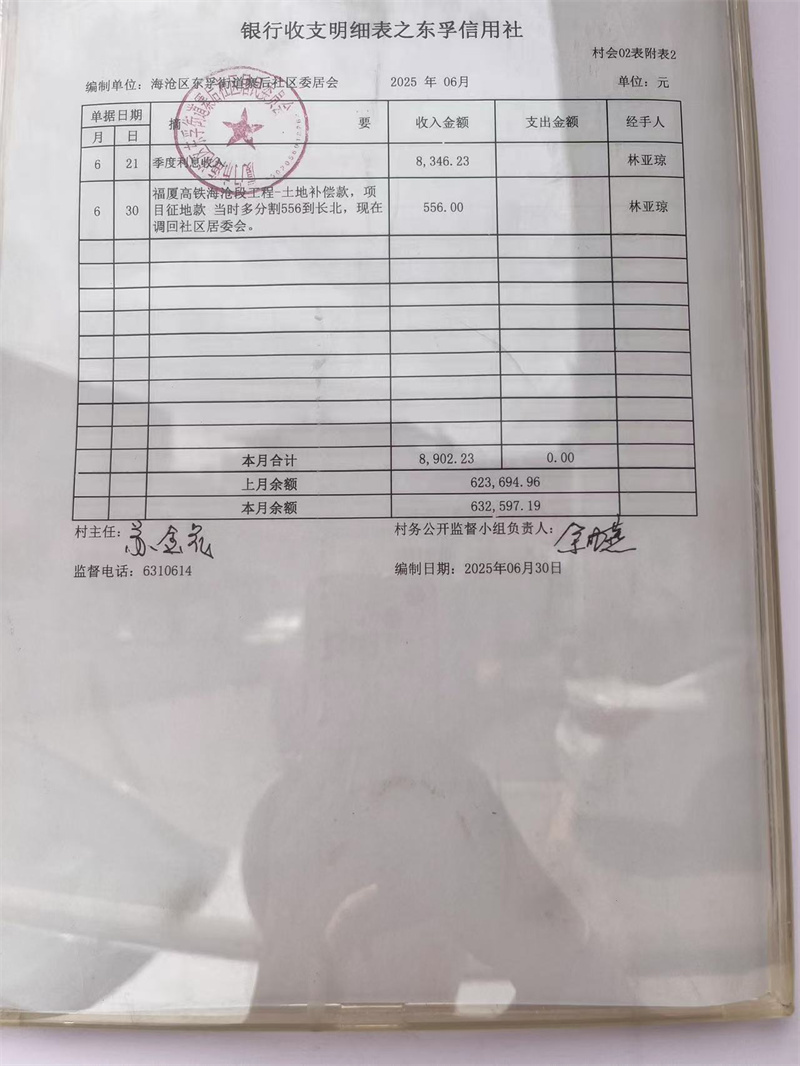 银行收支明细表之东孚信用社
村会02表附表2
编制单位：海沧区东孚街道寨后社区委居会 2025 年 06月 单位：元
单据日期 摘 要 收入金额 支出金额 经手人
月 日
6 21 季度利息收入 8,346.23 林亚琼
福厦高铁海沧段工程-土地补偿款，项
6 30 目征地款 当时多分割556到长北，现在 556.00 林亚琼
调回社区居委会。
本月合计 8,902.23 0.00
上月余额 623,694.96
本月余额 632,597.19
村主任： 村务公开监督小组负责人：
监督电话：6310614 编制日期：2025年06月30日